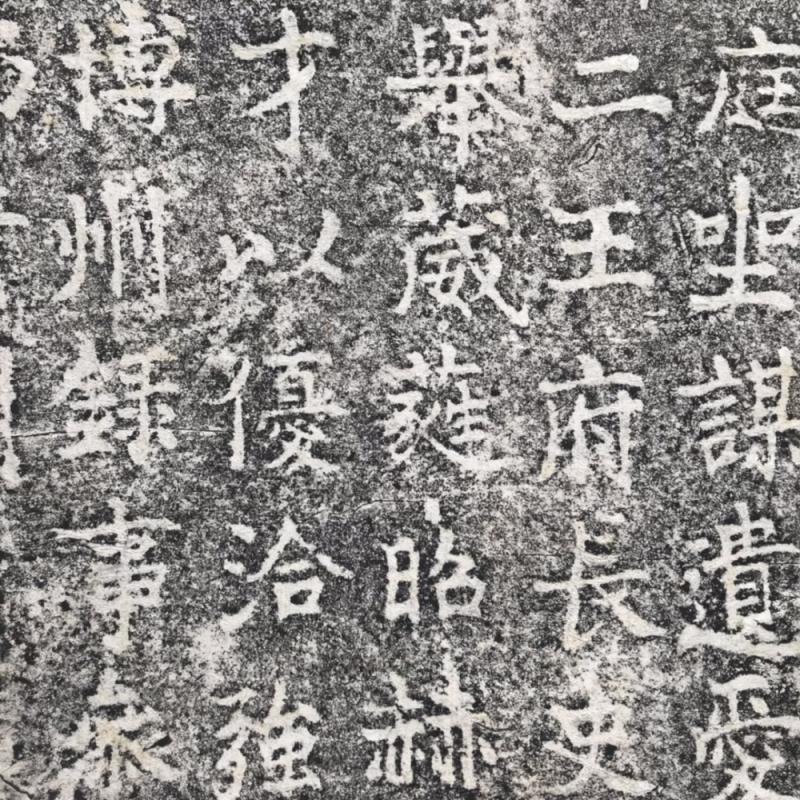 庭坐謀遺愛
二王府長史
舉葳蕤昭赫
才以優洽強
博州錄事參